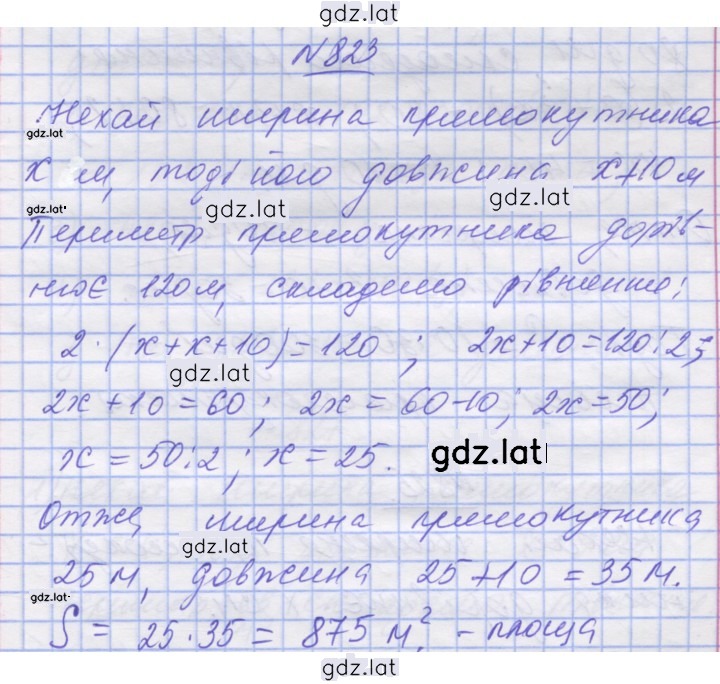 gdz.lat
N 823
Нехай ширина прямокутника
gdz.lat
х м, тоді його довжина х+10 м
gdz.lat
gdz.lat
gdz.lat
Периметр прямокутника дорів-
нює 120 м, складемо рівняння:
2·(х+х+10)=120; 2х+10=120:2;
gdz.lat
2х+10=60; 2х=60-10; 2х=50;
х=50:2; х=25.
gdz.lat
Отже, ширина прямокутника
gdz.lat
25 м, довжина 25+10=35 м.
gdz.lat
S = 25·35 = 875 м². - площа
gdz.lat